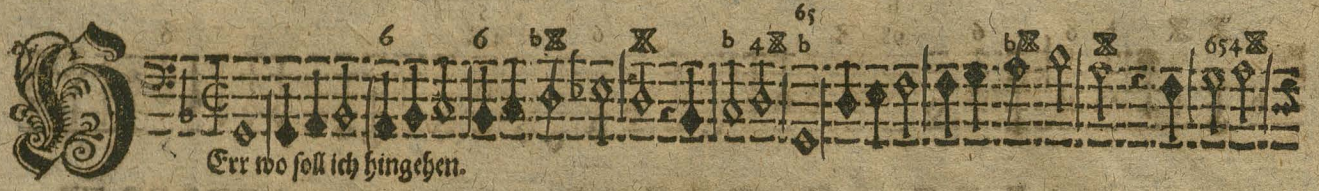 65
6 6 b b 4 b b 654
HErr wo soll ich hingehen.